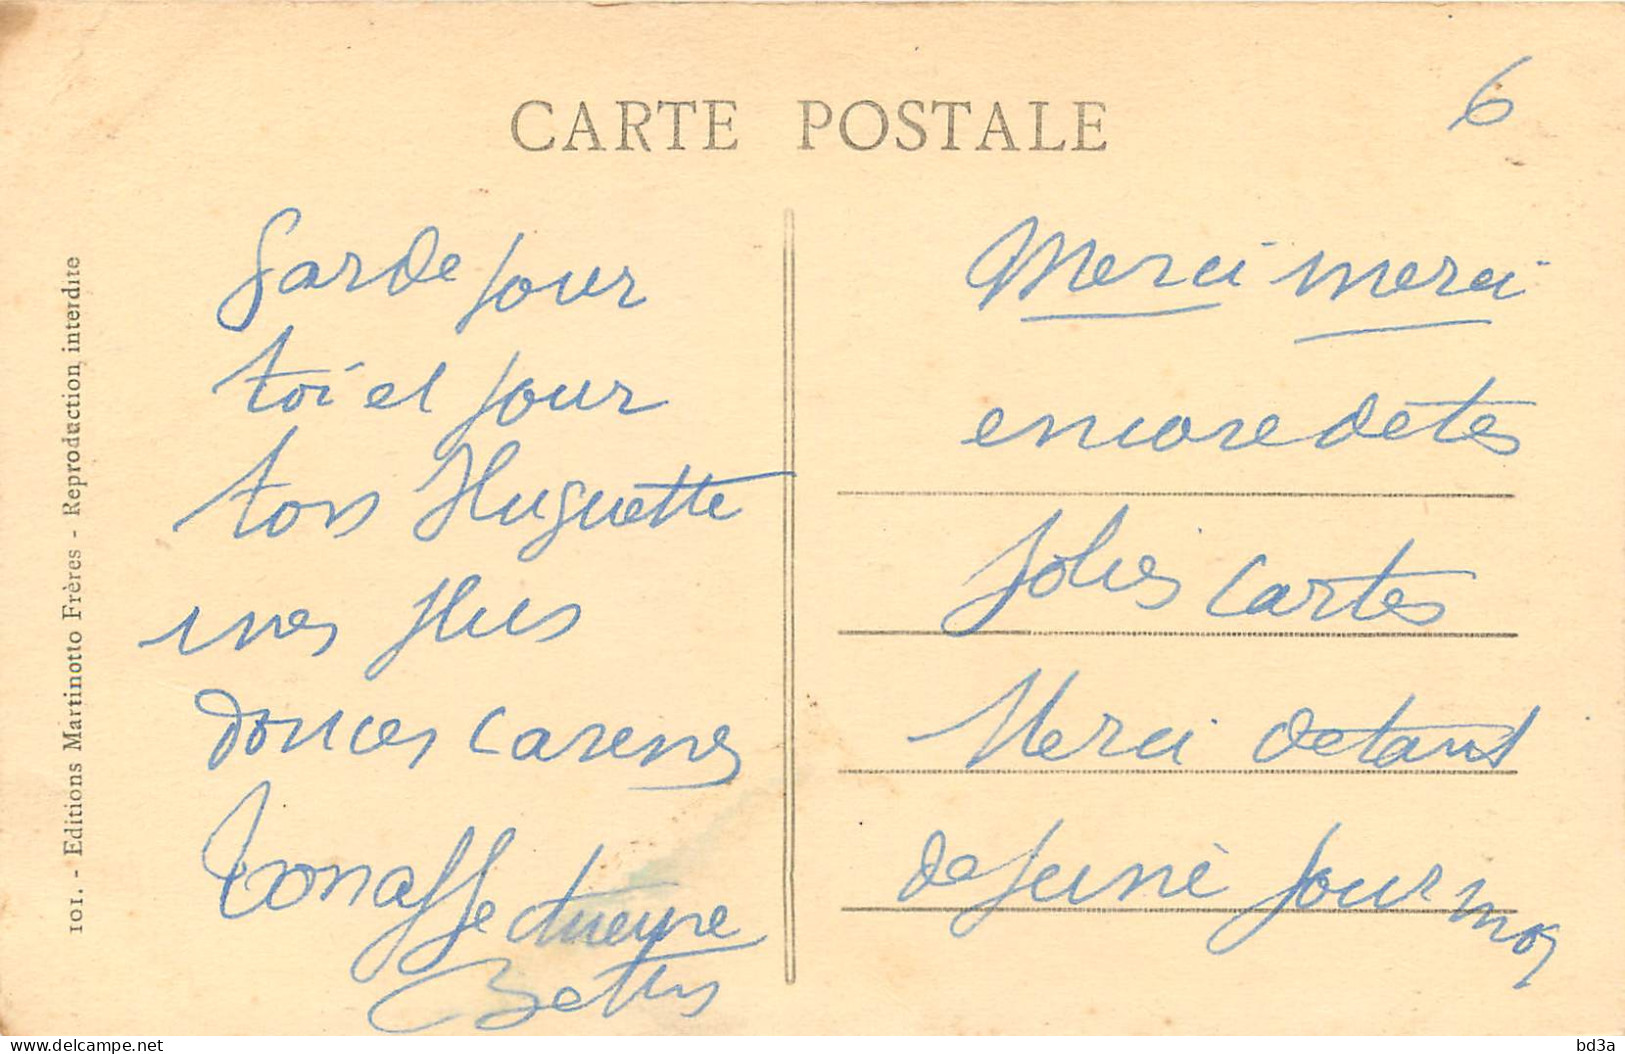 CARTE POSTALE
6
Garde pour
toi et pour
ton Huguette
mes plus
douces caresses
Ton affectueuse
Betty
Merci merci
encore de tes
jolies cartes
Merci de tant
de peine pour moi
101. - Editions Martinotto Frères - Reproduction interdite
delcampe.net
bd3a